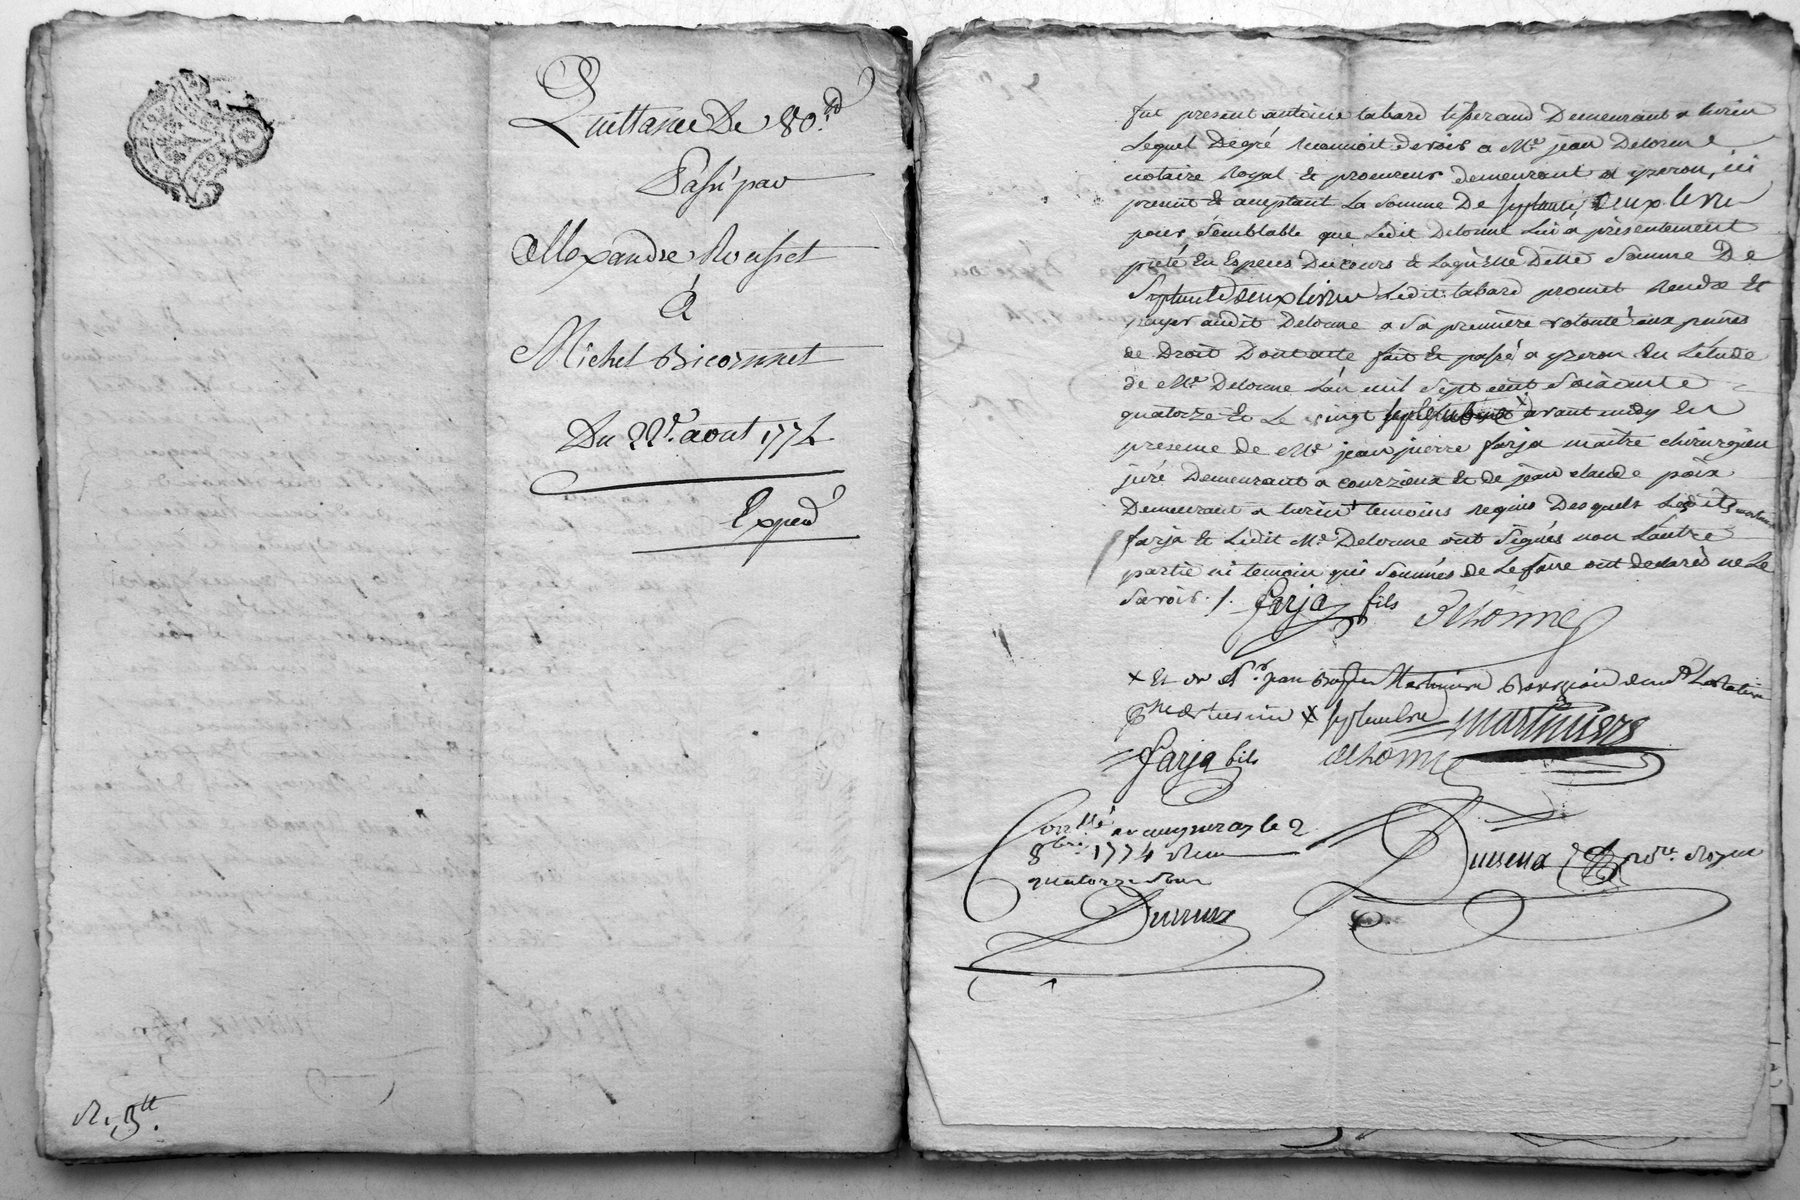 Quittance De 80.tt
Passé par
Allexandre Rousset
à
Michel Bicornnet
Du 22e. aout 1774
Exped
R. 13tt.
fut present antoine tabard tisserand Demeurant a
Lequel De gré reconnoit devoir a Me. jean Delorme
notaire Royal & procureur demeurant a yzeron, ici
present & acceptant La somme De septante deux livres
pour semblable que Ledit Delorme Lui a présentement
preté En Especes Du cours & Laquelle Ditte somme De
septante deux livres Ledit tabard promet rendre Et
payer audit Delorme a sa première volonté aux peines
de Droit Dont acte fait & passé a yzeron En L'etude
de Me. Delorme L'an mil sept cent soixante
quatorze & Le vingt septembre avant midy En
presence de Me. jean pierre farja maitre chirurgien
juré Demeurant a courzieux & de jean claude
Demeurant a temoins requis Desquels Lesdits
farja & Ledit Me. Delorme ont signés non L'autre
partie ni temoin qui sommés de Le faire ont declarés ne Le
savoir ./. farja fils Delhorme
x Et de Sr. jean Martiniere Bourgeois
x septembre martiniere
farja fils delhorme
Conttlé a le 2
8bre. 1774 Reçu
quatorze sous